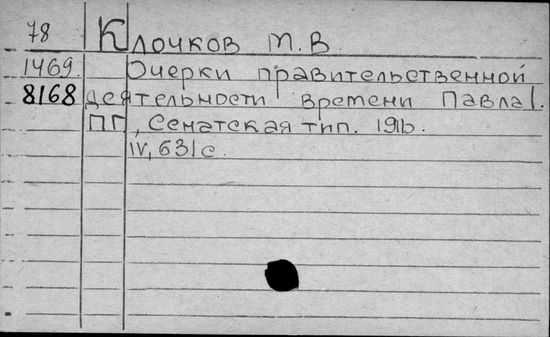 78 Клочков М.В.
1469 Очерки правительственной
8168 деятельности времени Павла I.
ПГ, Сенатская тип. 1916.
IV, 631 с.